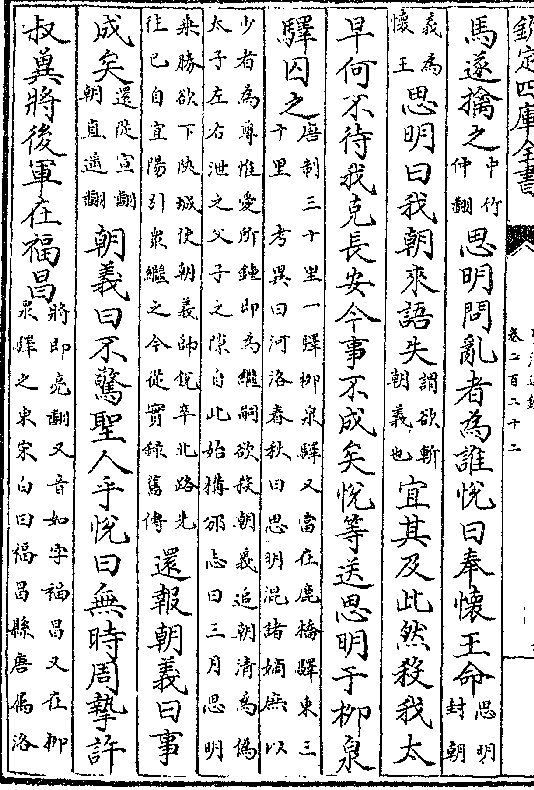 欽定四庫全書
卷二百二十二
馬遂擒之中竹仲翻思明問亂者為誰悅曰奉懷王命思明封朝
義為懷王思明曰我朝來語失謂欲斬朝義也宜其及此然殺我太
早何不待我克長安今事不成矣悅等送思明于栁泉
驛囚之唐制三十里一驛栁泉驛又當在鹿橋驛東三十里 考異曰河洛春秋曰思明混諸嫡庶以
少者為尊惟愛所鍾即為繼嗣欲殺朝義追朝清為偽太子左右泄之父子之隙自此始搆邵志曰三月思明
乘勝欲下陜城使朝義帥銳卒北路先往已自宜陽引衆繼之今從實録舊傳還報朝義曰事
成矣還從宣翻朝直遥翻朝義曰不驚聖人乎悅曰無時周摯許
叔冀將後軍在福昌將即亮翻又音如字福昌又在栁泉驛之東宋白曰福昌縣唐屬洛